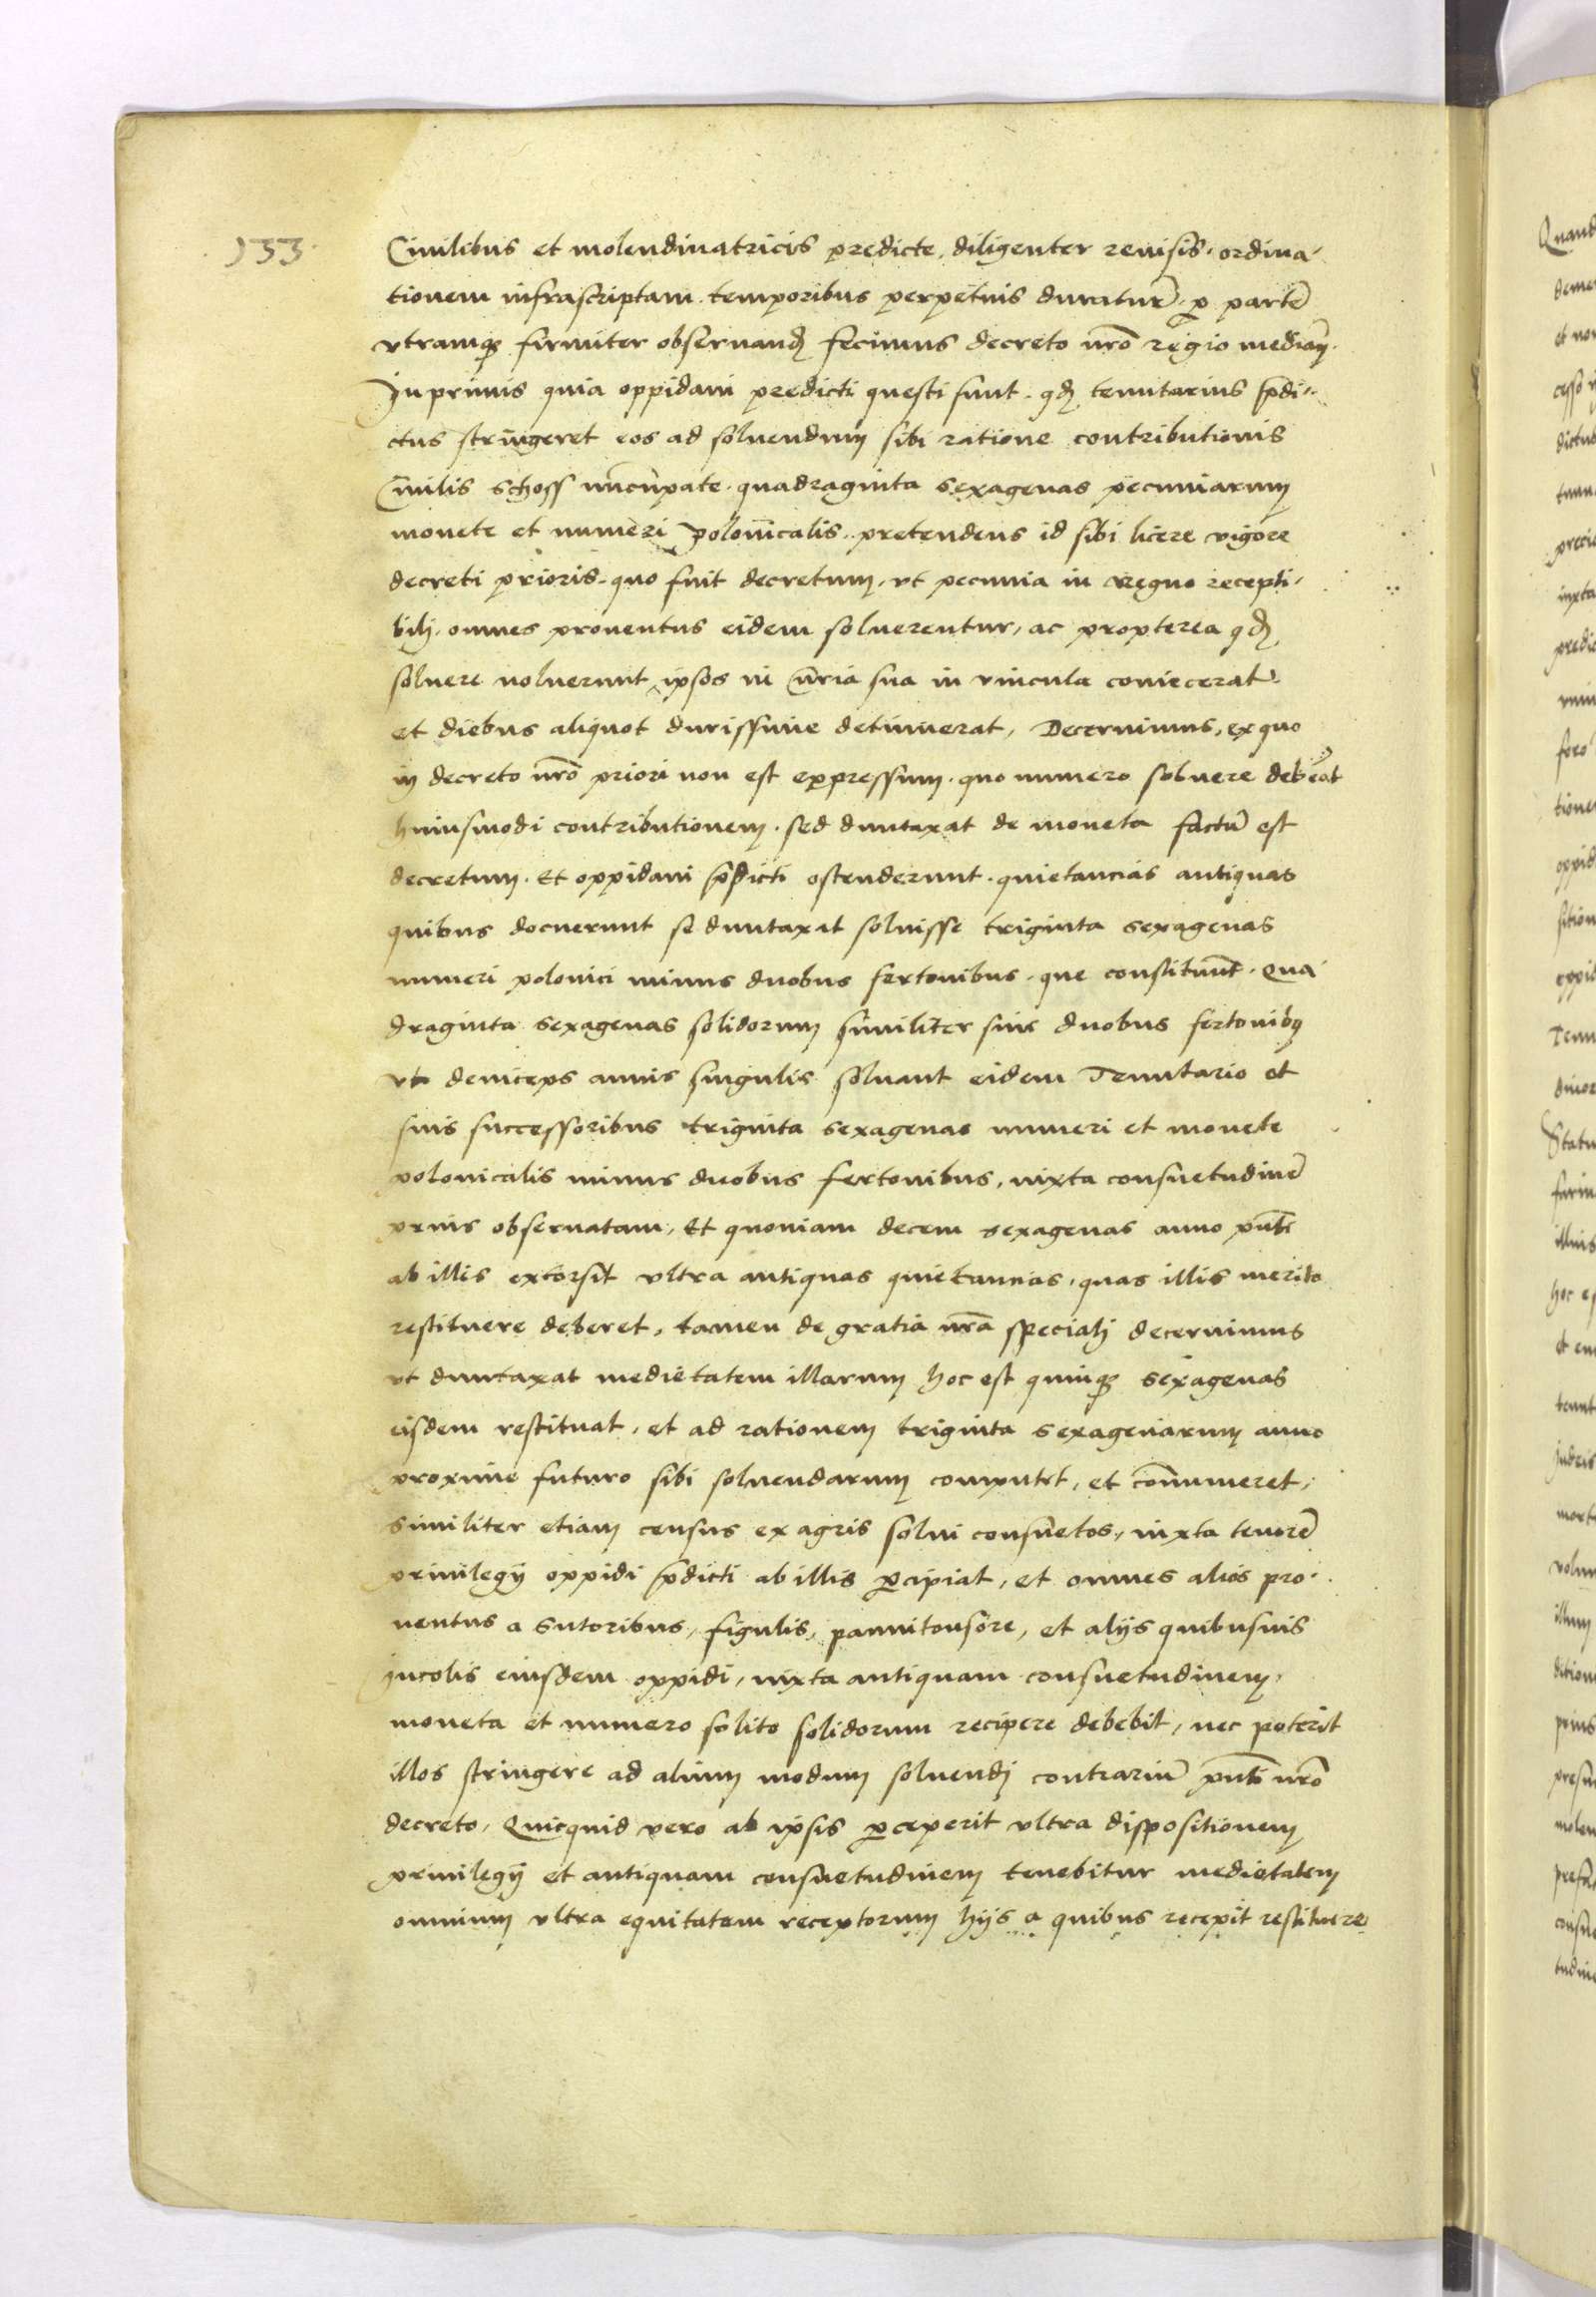 133
Ciuilibus et molendinatricis predicte, diligenter reuisis, ordina-
tionem infrascriptam temporibus perpetuis duraturã, ꝑ partẽ
vtramqꝫ firmiter obseruandã fecimus decreto nr̃o regio mediañ.
Inprimis quia oppidani predicti questi sunt, qđ tenutarius p̃di-
ctus stringeret eos ad soluendum sibi ratione contributionis
Ciuilis schoss nũcupate, quadraginta sexagenas pecuniarum
monete et numeri polonicalis, pretendens id sibi licere vigore
decreti prioris, quo fuit decretum, vt pecunia in regno recepti-
bili, omnes prouentus eidem soluerentur, ac propterea qđ
soluere noluerunt, ipsos in cũria sua in vincula coniecerat
et diebus aliquot durissime detinuerat, Decernimus, ex quo
in decreto nr̃o priori non est expressum, quo numero soluere debeãt
huiusmodi contributionem, sed duntaxat de moneta factũ est
decretum, Et oppidani p̃dicti ostenderunt quietancias antiquas
quibus docuerunt se duntaxat soluisse triginta sexagenas
numeri polonici minus duobus fertonibus, que constituũt, Qua-
draginta sexagenas solidorum similiter sine duobus fertonibꝫ
vt deinceps annis singulis soluant eidem Tenutario et
suis successoribus triginta sexagenas numeri et monete
polonicalis minus duobus fertonibus, iuxta consuetudinẽ
prius obseruatam, Et quoniam decem sexagenas anno pñti
ab illis extorsit vltra antiquas quietancias, quas illis merito
restituere deberet, tamen de gratia nr̃a speciali decernimus
vt duntaxat medietatem illarum hoc est quinqꝫ sexagenas
eisdem restituat, et ad rationem triginta sexagenarum anno
proxime futuro sibi soluendarum computet, et cõnumeret,
similiter etiam census ex agris solui consuetos, iuxta tenorẽ
priuilegij oppidi p̃dicti ab illis ꝑcipiat, et omnes alios pro-
uentus a sutoribus, figulis, pannitonsore, et alijs quibusuis
incolis eiusdem oppidi, iuxta antiquam consuetudinem,
moneta et numero solito solidorum recipere debebit, nec poterit
illos stringere ad alium modum soluendi contrariũ pñti nr̃o
decreto, Quicquid vero ab ipsis ꝑceperit vltra dispositionem
priuilegij et antiquam consuetudinem tenebitur medietatem
omnium vltra equitatem receptorum hijs a quibus recepit restituere